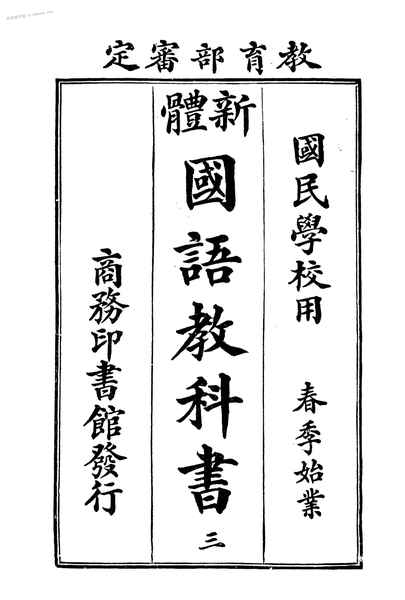 教育部審定
國民學校用
春季始業
新體
國語教科書
三
商務印書館發行